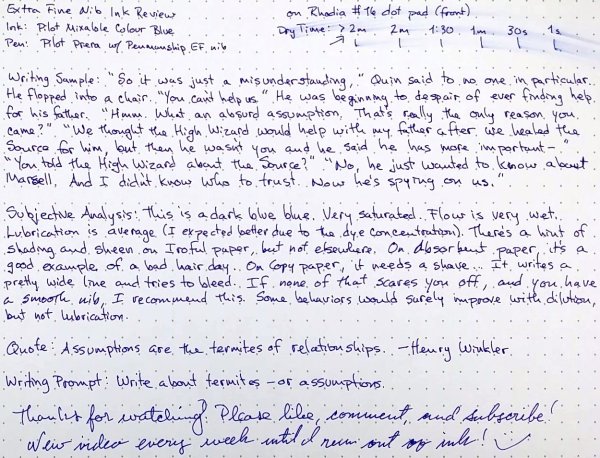 Extra Fine Nib Ink Review
on Rhodia #16 dot pad (front)
Ink: Pilot Mixable Colour Blue
Dry Time: > 2m 2m 1:30 1m 30s 1s
Pen: Pilot Prera w/ Penmanship EF nib
Writing Sample: "So it was just a misunderstanding," Quin said to no one in particular.
He flopped into a chair. "You can't help us." He was beginning to despair of ever finding help
for his father. "Hmm. What an absurd assumption. That's really the only reason you
came?" "We thought the High Wizard would help with my father after we healed the
Source for him, but then he wasn't you and he said he has more important—"
"You told the High Wizard about the Source?" "No, he just wanted to know about
Marsell. And I didn't know who to trust. Now he's spying on us."
Subjective Analysis: This is a dark blue blue. Very saturated. Flow is very wet.
Lubrication is average (I expected better due to the dye concentration). There's a hint of
shading and sheen on Iroful paper, but not elsewhere. On Absorbent paper, it's a
good example of a bad hair day. On Copy paper, it needs a shave... It writes a
pretty wide line and tries to bleed. If none of that scares you off, and you have
a smooth nib, I recommend this. Some behaviors would surely improve with dilution,
but not lubrication.
Quote: Assumptions are the termites of relationships. —Henry Winkler
Writing Prompt: Write about termites – or assumptions.
Thanks for watching! Please like, comment, and subscribe!
New video every week until I run out of ink!